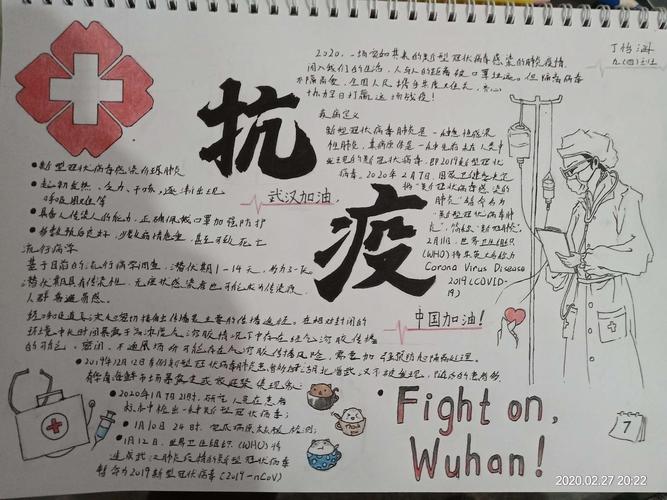 2020,一场突如其来的新型冠状病毒感染的肺炎疫情
闯入我们的生活,人与人的距离被口罩拉远。但隔离病毒
不隔离爱,全国人民携手共度
抗
疫
武汉加油,
中国加油!
疾病定义
新型冠状病毒肺炎是一种急性感染
性肺炎,其病原体是一种先前
的新型冠状病毒,即2019新型冠状
病毒。2020年2月7日,国家卫健委决定
将“新型冠状病毒感染的
肺炎”暂命名为
“新型冠状病毒肺
炎”,简称“新冠肺炎”。
2月11日,世界卫生组织
(WHO)将其英文名称为
Corona Virus Disease
2019(COVID-
19)
●新型冠状病毒感染的肺炎
●起初发热、乏力、干咳,逐渐出现
呼吸困难等
●具备人传人的能力,正确佩戴口罩加强防护
●多数预后良好,少数病情危重,甚至可致死亡
流行病学
基于目前的流行病学调查,潜伏期1-14天,多为3-7天。
潜伏期具有传染性,无症状感染者也可能成为传染源,
人群普遍易感。
经呼吸道飞沫和密切接触传播是主要的传播途径。在相对封闭的
环境中长时间暴露于高浓度气溶胶情况下存在经气溶胶传播
的可能。密闭、不通风场所可能存在气溶胶传播风险,需要加强
●2019年12月12日
●2020年1月7日21时,研究人员在患者
标本中检出一种新型冠状病毒;
●1月10日24时,完成病原核酸检测;
●1月12日,世界卫生组织(WHO)将
造成武汉肺炎疫情的新型冠状病毒
暂命为2019新型冠状病毒(2019-nCoV)
Thank you
Fight on,
Wuhan!
7
2020.02.27 20:22